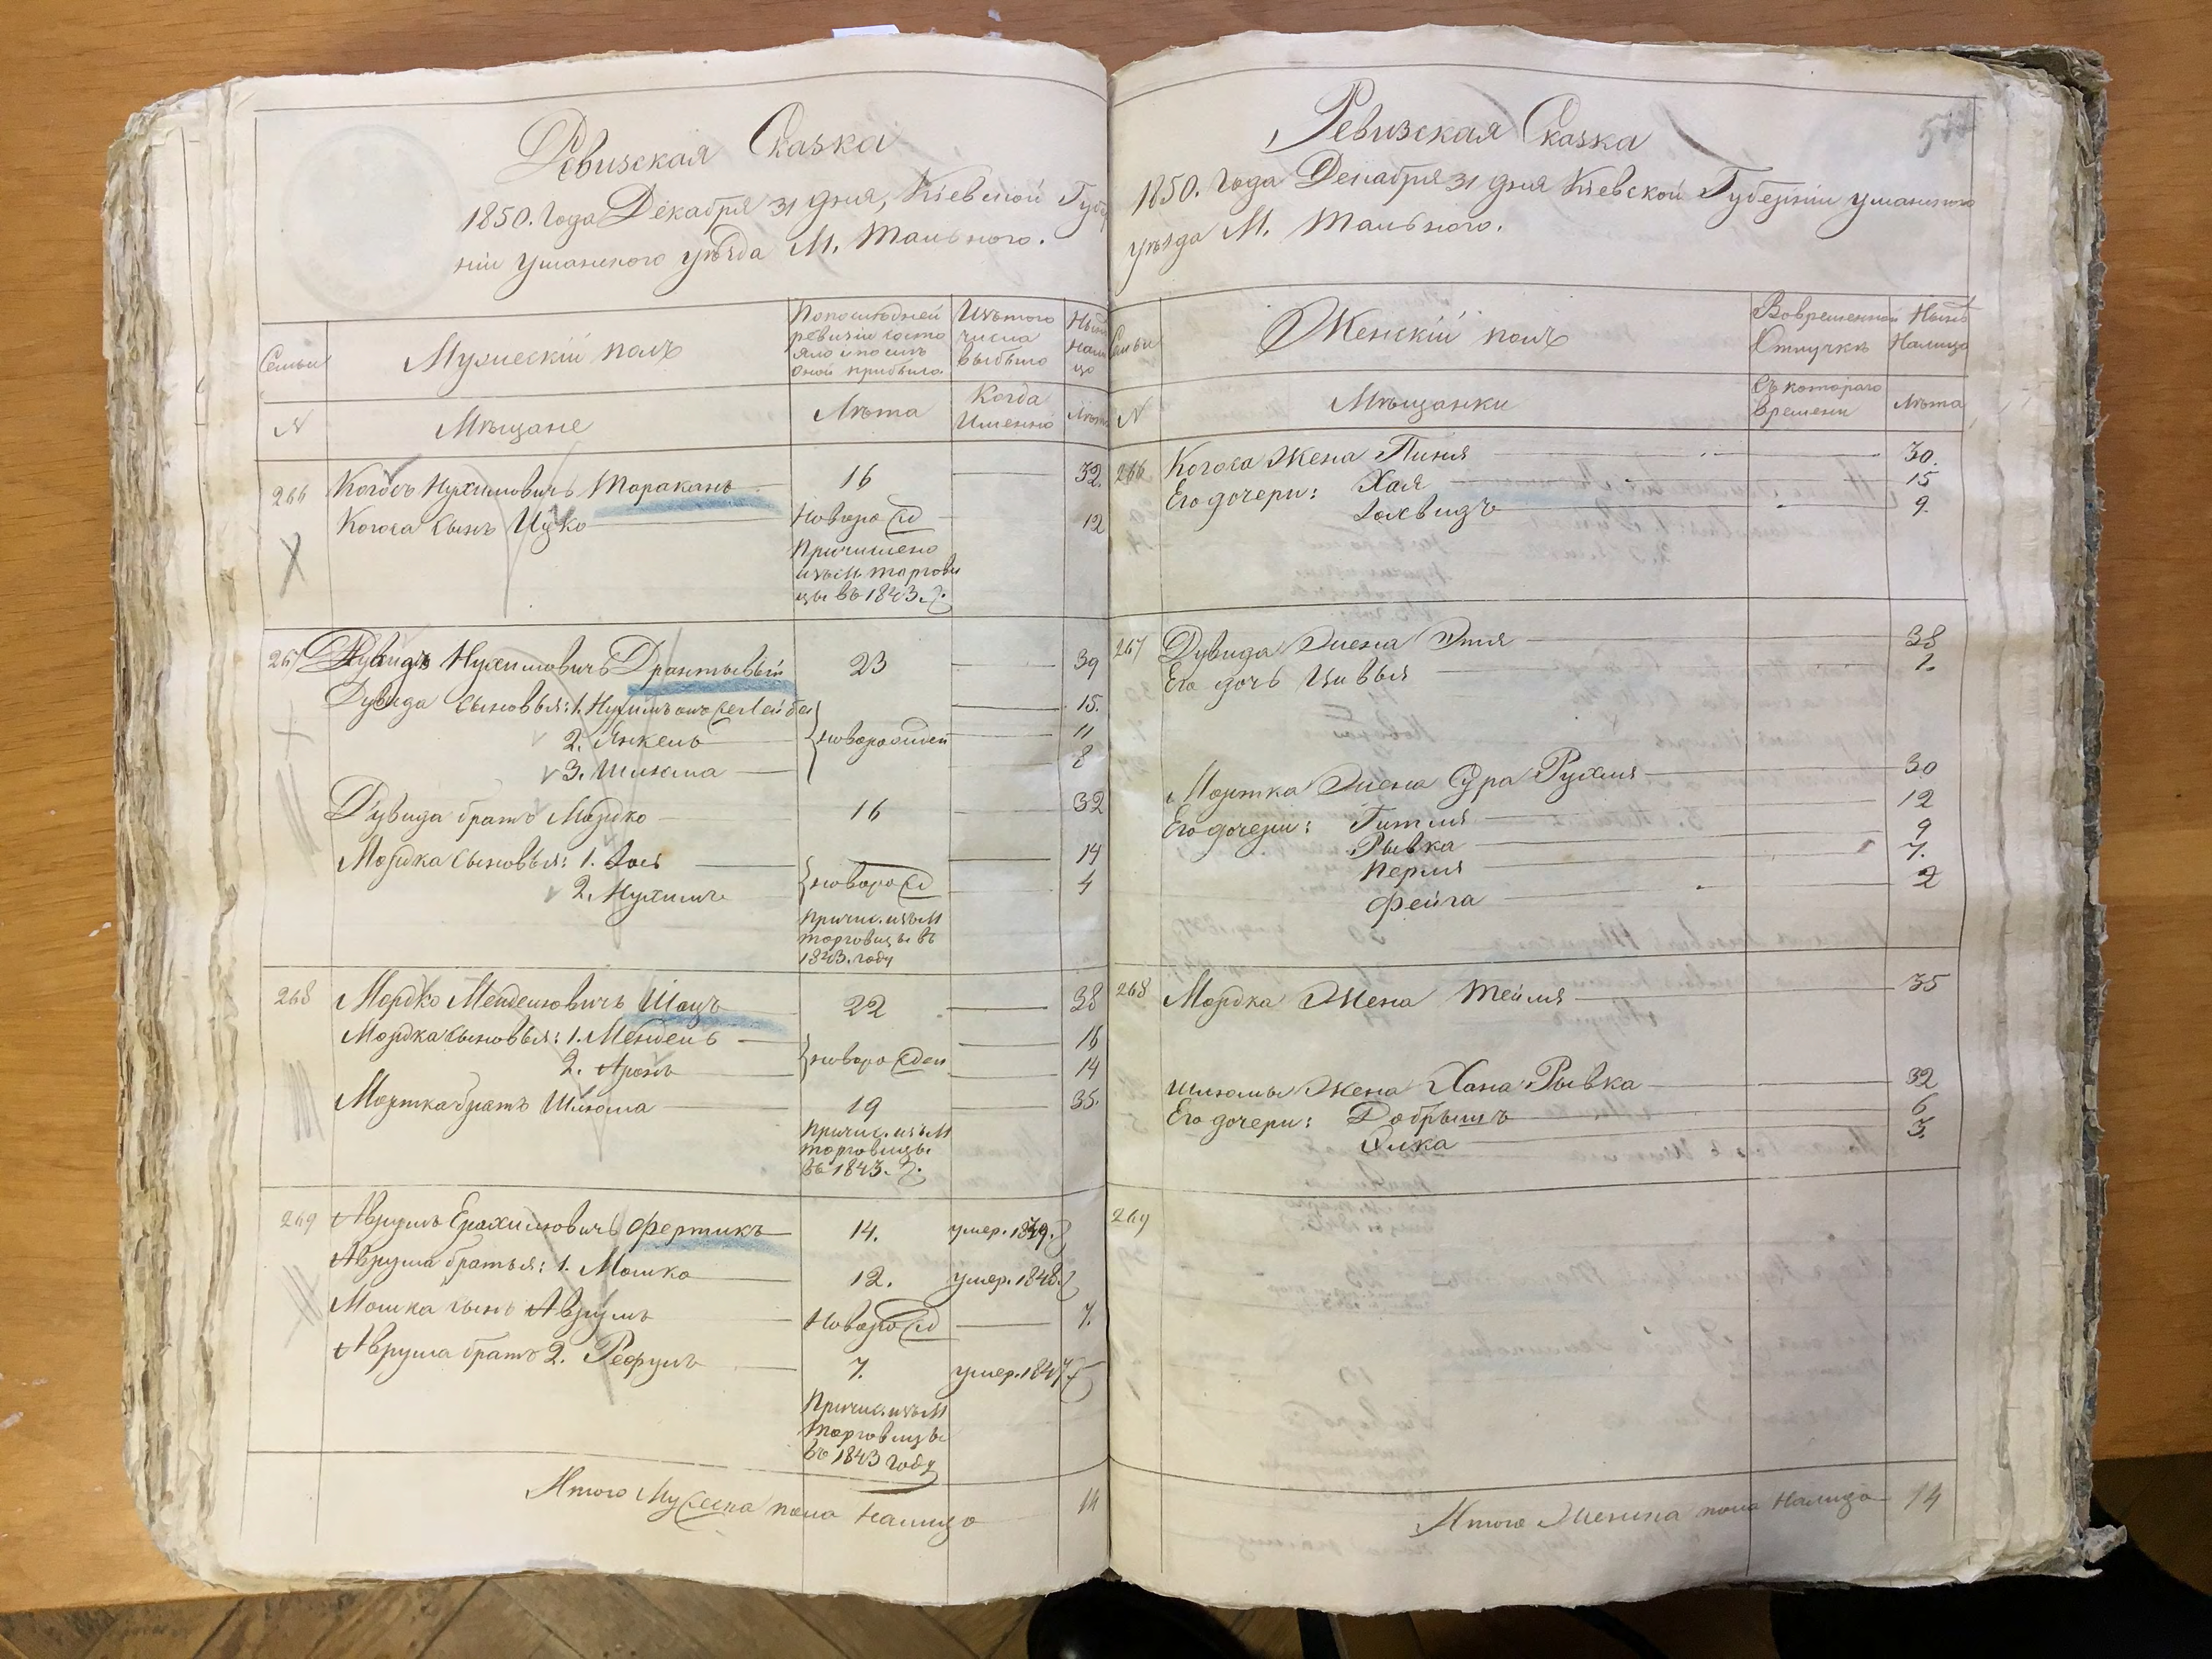 Ревизская Сказка
1850. года Декабря 31 дня, Кіевской Губер
ніи Уманского уѣзда М. Тального.
Семьи
Мужескій полъ
По последней
ревизіи состо
яло и после
оной прибыло
Изъ того
числа
выбыло
Нынѣ
Нали
цо
N
Мѣщане
Лѣта
Когда
Именно
Лѣта
266 Когосъ Нухимовичъ Тараканъ 16 32.
Когоса Сынъ Ицко Новорожд 12
Причислено
изъ м. Торгови
цы въ 1843. г.
267 Дувидъ Нухимовичъ 23 39
Дувида Сыновья: 1. Нухимъ 15.
2. Янкель новорожден 11
3. Шлиома 8
Дувида братъ Мордко 16 32
Мордка сыновья: 1. Іось 14
2. Нухимъ новорожд 4
Причис. изъ М
Торговицы въ
1843. году
268 Мордко Менделювичъ Шацъ 22 38
Мордка сыновья: 1. Мендель 16
2. Аронъ новорожден 14
Мортка братъ Шліома 19 35.
Причис. изъ М
Торговицы
въ 1843. г.
269 Аврумъ Ерохимовичъ Фертикъ 14. умер. 1849.
Аврума братья: 1. Мошко 12. умер. 1848.
Мошка сынъ Аврумъ Новорожд 7.
Аврума братъ 2. Рефулъ 7. умер. 1847
Причис. изъ М
Торговицы
въ 1843 году
Итого Мужеска пола налицо 14
Ревизская Сказка
1850. года Декабря 31 дня Кіевской Губерніи Уманского
уѣзда М. Тального.
Семьи
Женскій полъ
Во временной
Отлучкѣ
Нынѣ
Налицо
N
Мѣщанки
Съ котораго
времени
Лѣта
266 Когоса Жена Пиня 30.
Его дочери: Хая 15
9.
267 Дувида Жена Этя 38
Его дочь Цивья 1.
Мортка Жена Сура Рухля 30
Его дочери: Гитля 12
Рывка 9
Перля 7.
Фейга 2
268 Мордка Жена Тейля 35
Шлюмы Жена Хана Рывка 32
Его дочери: Добрышъ 6
Элка 3.
269
Итого Женска пола Налицо 14